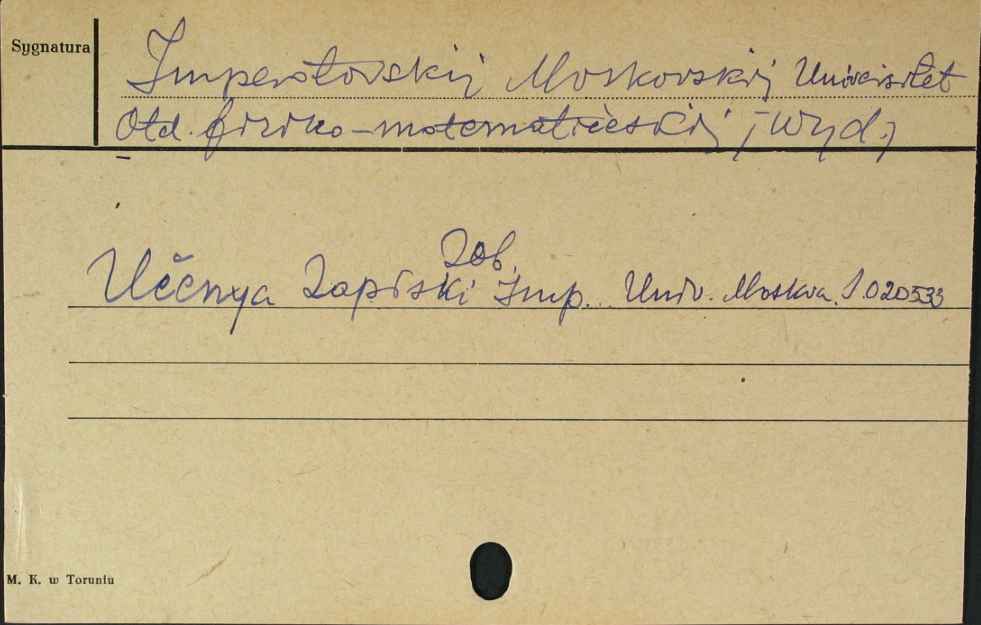 Sygnatura
Imperatorskij Moskovskij Universitet
Otd. fiziko-matematičeskij [wyd.]
Zob.
Učenya Zapiski Imp. Univ. Moskva. S.020533
M. K. w Toruniu